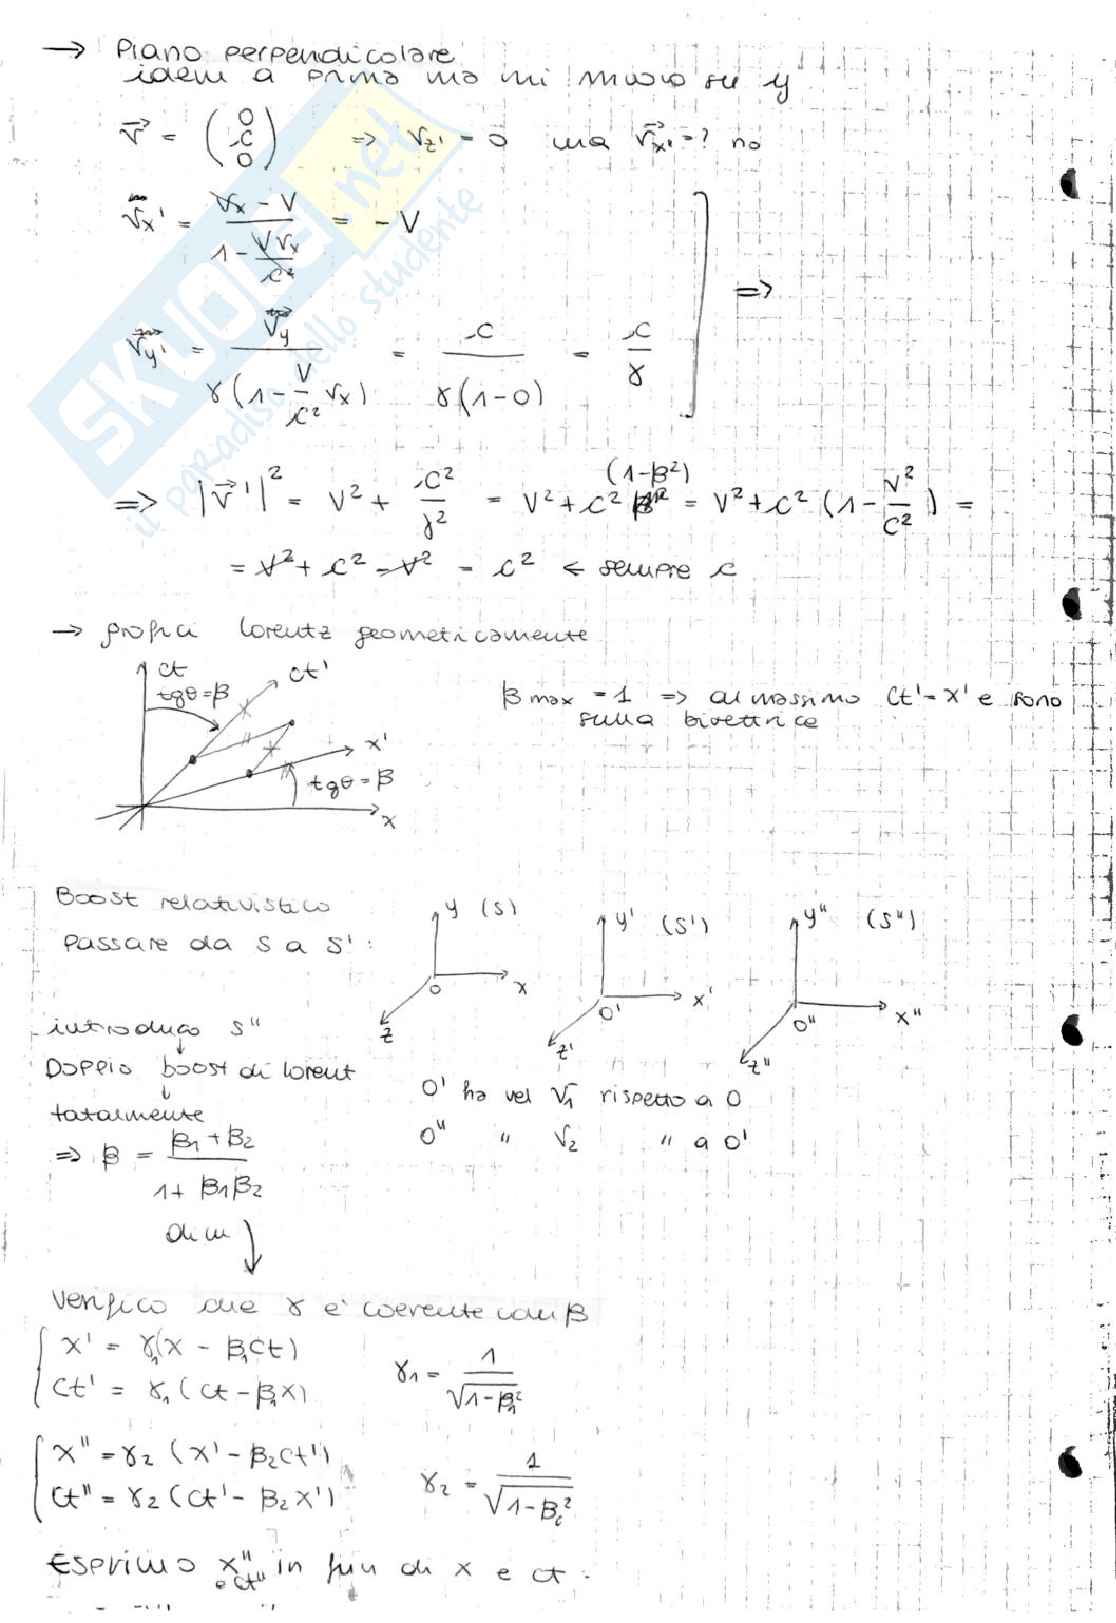 → Piano perpendicolare
idem a prima ma mi muovo su y
v⃗ = (0 c 0) ⇒ v_z' = 0 ma v⃗_x' = ? no
v⃗_x' = (v_x - V) / (1 - V v_x / c²) = - V
v⃗_y' = v⃗_y / (γ(1 - V/c² v_x)) = c / (γ(1-0)) = c/γ ] ⇒
⇒ |v⃗'|² = V² + c²/γ² = V² + c² (1-β²) = V² + c² (1 - V²/c²) =
= V² + c² - V² = c² ← sempre c
→ grafici Lorentz geometricamente
ct
tgθ=β
ct'
x'
tgθ=β
x
β max = 1 ⇒ al massimo ct'=x' e sono
sulla bisettrice
Boost relativistico
Passare da S a S':
y (S)
x
O
z
y' (S')
x'
O'
z'
y" (S")
x"
O"
z"
introduco S"
Doppio boost di Lorent
totalmente
⇒ β = (β₁ + β₂) / (1 + β₁β₂)
dim
O' ha vel v₁ rispetto a O
O" " v₂ " a O'
Verifico che γ è coerente con β
x' = γ₁(x - β₁ct)
ct' = γ₁(ct - β₁x)
γ₁ = 1/√(1-β₁²)
x" = γ₂ (x' - β₂ct')
ct" = γ₂ (ct' - β₂x')
γ₂ = 1/√(1-β₂²)
Esprimo x" e ct" in fun di x e ct:
SKUOLA.net
il paradiso dello studente